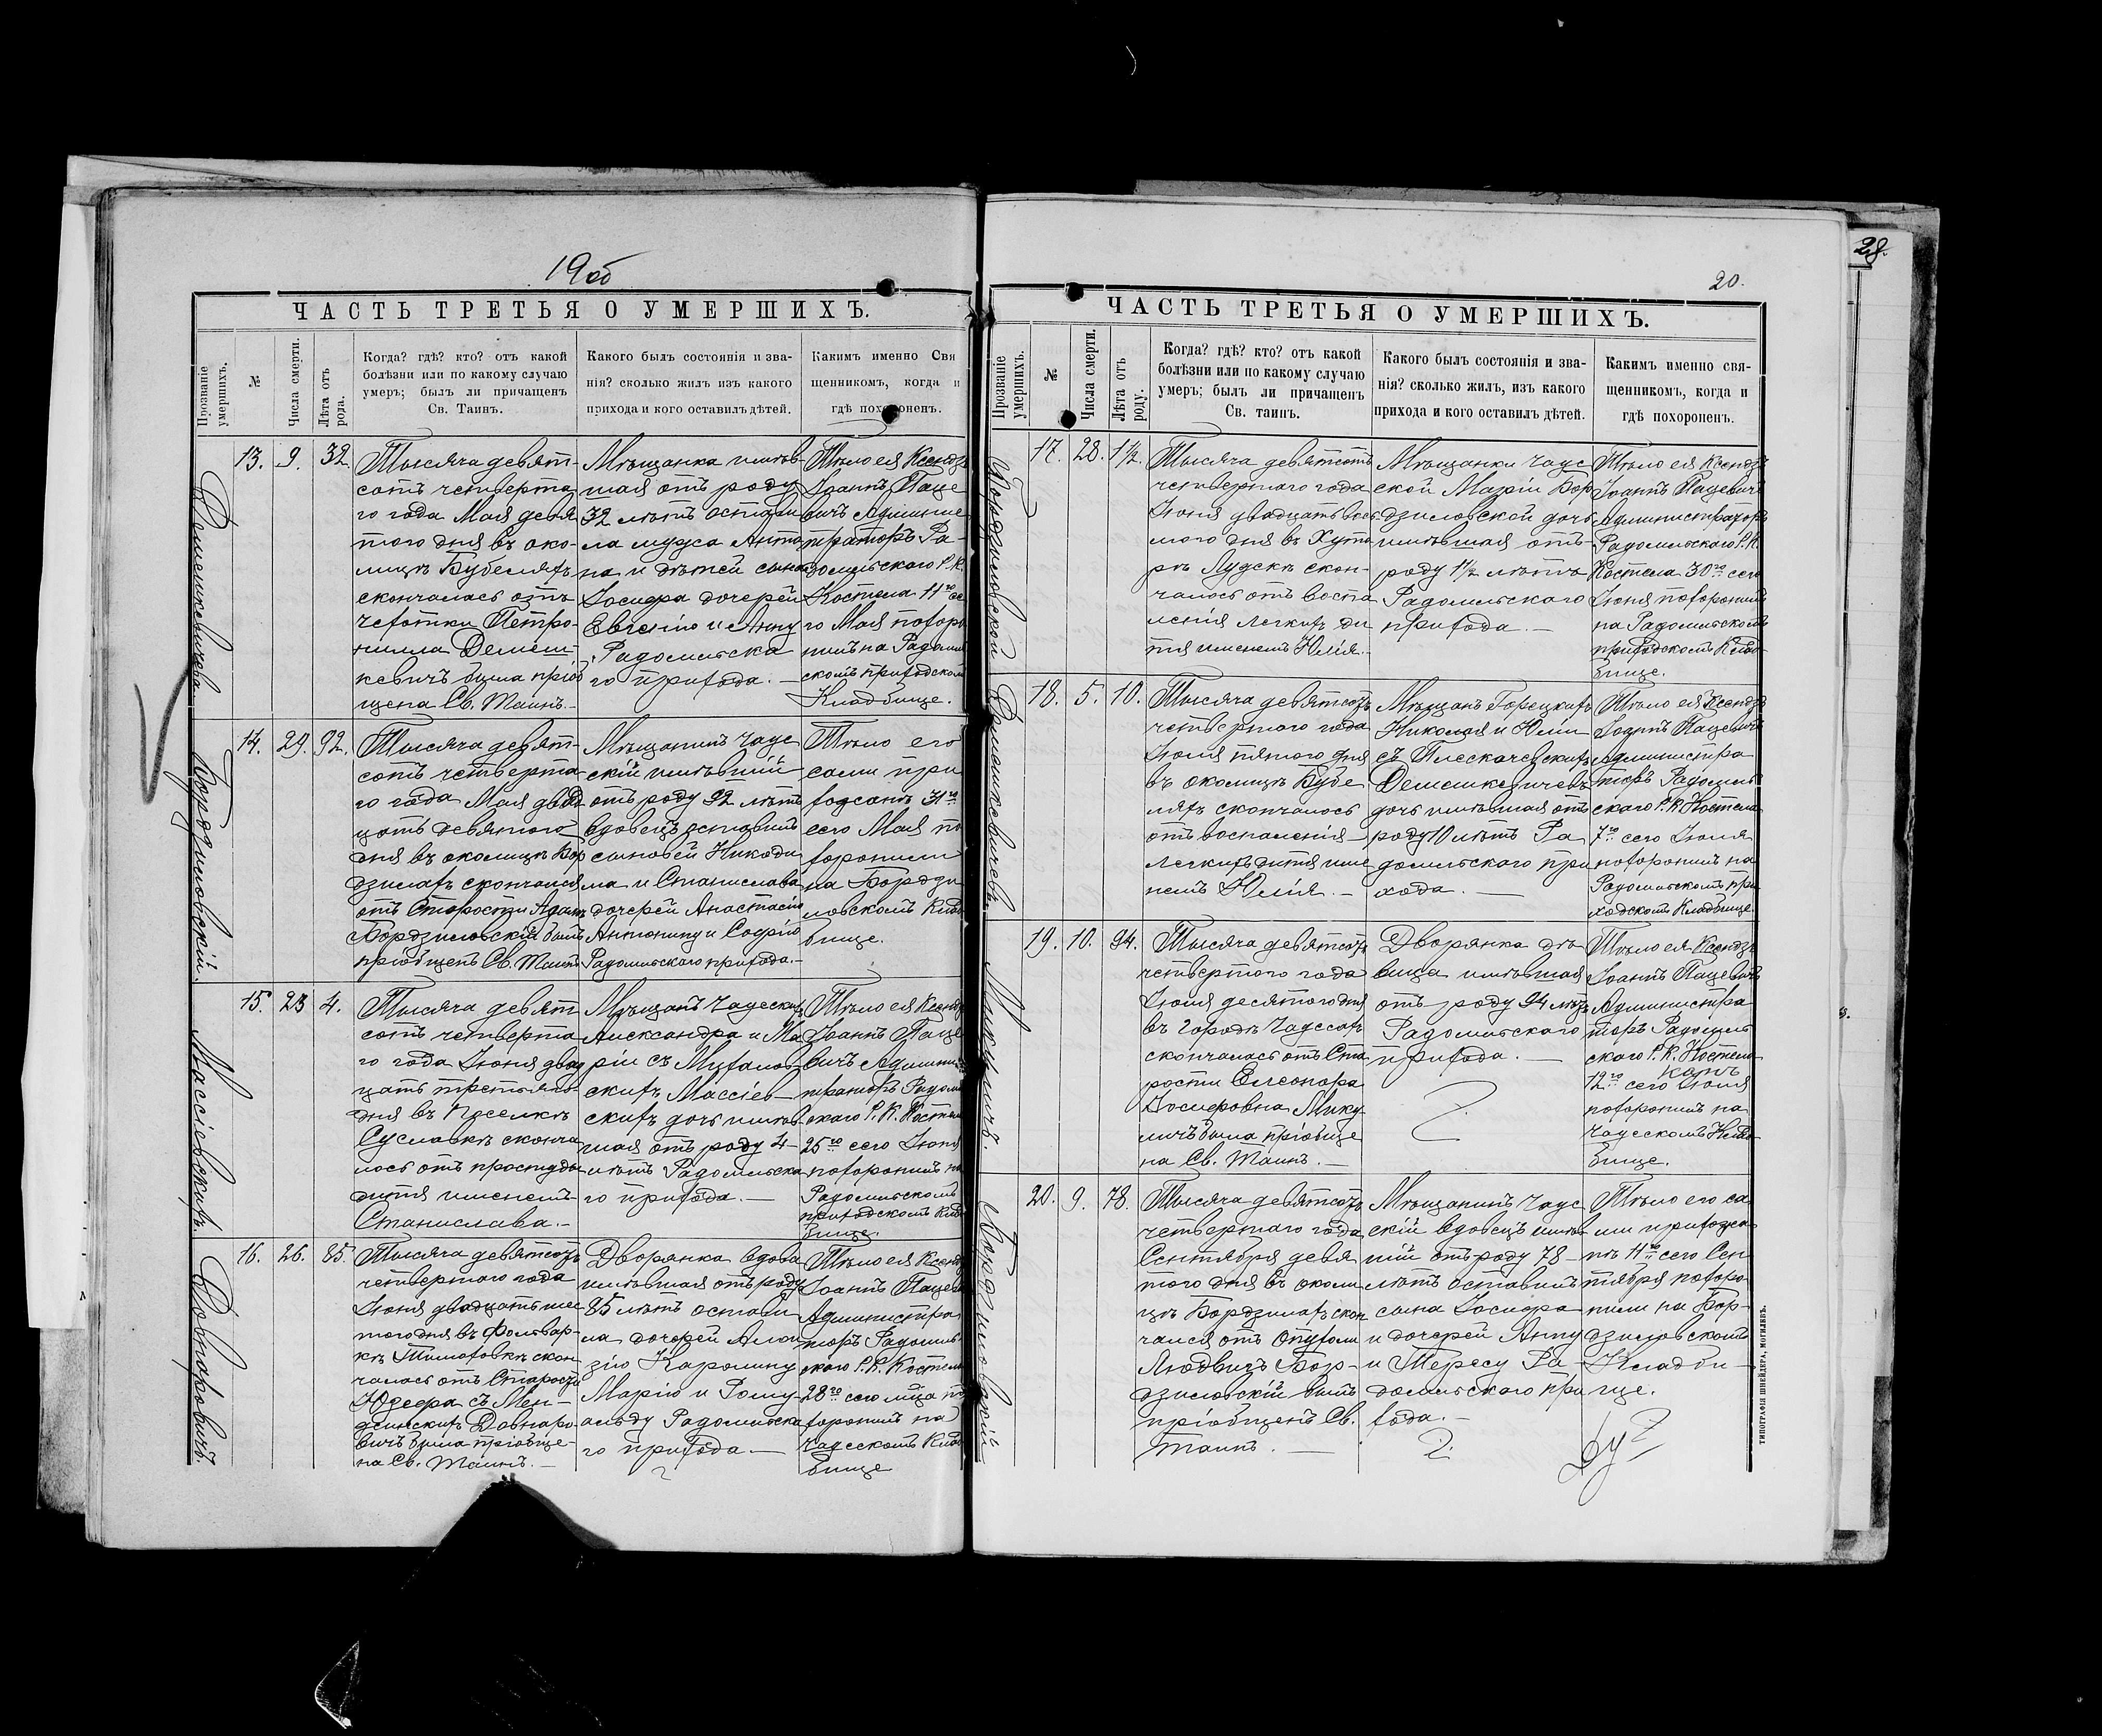 19 об
ЧАСТЬ ТРЕТЬЯ О УМЕРШИХЪ.
Прозваніе умершихъ.
№
Числа смерти.
Лѣта отъ рода.
Когда? гдѣ? кто? отъ какой
болѣзни или по какому случаю
умеръ; былъ ли причащенъ
Св. Таинъ.
Какого былъ состоянія и зва-
нія? сколько жилъ изъ какого
прихода и кого оставилъ дѣтей.
Каким именно Свя
щенникомъ, когда и
гдѣ похороненъ.
Демешкевичева
13. 9. 32.
Тысяча девят-
сотъ четверта
го года Мая девя
того дня въ око-
лицѣ Бубеляхъ
скончалась отъ
чехотки Петро-
нилла Демеш-
кевичъ была пріоб
щена Св. Таинъ.
Мѣщанка имѣв-
шая отъ роду
32 лѣтъ остави
ла мужа Анто
на и дѣтей сына
Іосифа дочерей
Евгенію и Анну
Радомльска
го прихода. —
Тѣло ея Ксендзъ
Іоаннъ Паце
вичъ Админис
траторъ Ра-
домльскаго Р. К.
Костела 11го се
го Мая похоро
нилъ на Радомль
скомъ приходскомъ
Кладбище.
Бордзиловскій.
14. 29. 92.
Тысяча девят-
сотъ четверта
го года Мая двад
цать девятого
дня въ околицѣ Бор
дзилахъ скончался
отъ Старости Адамъ
Бордзиловскій былъ
пріобщенъ Св. Таинъ
Мѣщанинъ Чаус
скій имѣвшій
отъ роду 92 лѣтъ
вдовецъ оставилъ
сыновей Никоди
ма и Станислава
дочерей Анастасію
Антонину и Софію
Радомльскаго прихода.—
Тѣло его
сами при
хожанѣ 31го
сего Мая по
хоронили
на Бордзи
ловскомъ Клад
бище.
Массіевскихъ.
15. 23 4.
Тысяча девят
сотъ четверта
го года Іюня двад
цать третьяго
дня въ Поселкѣ
Суславкѣ сконча
лось отъ простуды
дитя именемъ
Станислава.—
Мѣщанъ Чаусскихъ
Александра и Ма
ріи съ
скихъ Массіев—
скихъ дочь имѣв
шая отъ роду 4—
лѣтъ Радомльска
го прихода. —
Тѣло ея Ксендзъ
Іоаннъ Паце
вичъ Админис
траторъ Радомль
скаго Р. К. Костела
25го сего Іюня
похоронилъ на
Радомльскомъ
приходскомъ Клад
бище.
Довнаровичъ.
16. 26. 85.
Тысяча девятсотъ
четвертаго года
Іюня двадцать шес
того дня въ Фольвар-
кѣ Тимоховкѣ скон
чалась отъ Старости
Юзефа съ Мен-
жинскихъ Довнаро
вичъ была пріобще-
на Св. Таинъ. —
Дворянка вдова
имѣвшая отъ роду
85 лѣтъ остави
ла дочерей Алои
зію Каролину
Марію и Рому-
альду Радомльска
го прихода. —
Тѣло ея Ксендзъ
Іоаннъ Пацевичъ
Администра
торъ Радомль
скаго Р. К. Костела
28го сего м-ца по
хоронилъ на
Чаусскомъ Клад
бище
20.
28.
ЧАСТЬ ТРЕТЬЯ О УМЕРШИХЪ.
Прозваніе умершихъ.
№
Числа смерти.
Лѣта отъ роду.
Когда? гдѣ? кто? отъ какой
болѣзни или по какому случаю
умеръ; былъ ли причащенъ
Св. таинъ.
Какого былъ состоянія и зва-
нія? сколько жилъ, изъ какого
прихода и кого оставилъ дѣтей.
Каким именно свя-
щенникомъ, когда и
гдѣ похороненъ.
Бордзиловской
17. 28. 1½.
Тысяча девятсотъ
четвертаго года
Іюня двадцать вось
мого дня въ Хуто
рѣ Лудскѣ скон-
чалось отъ воспа
ленія легкихъ ди
тя именемъ Юлія.
Мѣщанки Чаус
ской Маріи Бор
дзиловской дочь
имѣвшая отъ
роду 1½ лѣтъ
Радомльскаго
прихода. —
Тѣло ея Ксендзъ
Іоаннъ Пацевичъ
Администраторъ
Радомльскаго Р. К.
Костела 30го сего
Іюня похоронилъ
на Радомльскомъ
приходскомъ Клад
бище.
Демешкевичева.
18. 5. 10.
Тысяча девятсотъ
четвертаго года
Іюля пятого дня
въ околицѣ Бубе
ляхъ скончалось
отъ воспаленія
Легкихъ дитя име
немъ Юлія. —
Мѣщанъ Горецкихъ
Николая и Юліи
съ Плескачевскихъ
Демешкевичевъ
дочь имѣвшая отъ
роду 10 лѣтъ Ра
домльскаго при
хода. —
Тѣло ея Ксендзъ
Іоаннъ Пацевичъ
Администра
торъ Радомль
скаго Р. К. Костела
7го сего Іюля
похоронилъ на
Радомльскомъ при
ходскомъ Кладбище.
Микуличъ.
19. 10. 94.
Тысяча девятсотъ
четвертого года
Іюля десятого дня
въ городѣ Чаусахъ
скончалась отъ Ста
рости Элеонора
Іосифовна Мику
личъ была пріобще
на Св. Таинъ. —
Дворянка дѣ
вица имѣвшая
отъ роду 94 лѣтъ
Радомльскаго
прихода. —
Тѣло ея Ксендзъ
Іоаннъ Пацевичъ
Администра
торъ Радомль
скаго Р. К. Костела
12го сего Іюля
похоронилъ на
Чаусскомъ Клад
бище.
Бордзиловскій
20. 9. 78.
Тысяча девятсотъ
четвертаго года
Сентября девя
того дня въ околи
цѣ Бордзилахъ скон
чался отъ Опухоли
Людвигъ Бор-
дзиловскій былъ
пріобщенъ Св.
Таинъ. —
Мѣщанинъ Чаус
скій вдовецъ имѣв
шій отъ роду 78—
лѣтъ оставилъ
сына Іосифа
и дочерей Анну
и Тересу Ра-
домльскаго при
хода.—
Тѣло его са
ми прихожа
нѣ 11го сего Сен
тября похоро
нили на Бор-
дзиловскомъ
Кладби—
ще.
ТИПОГРАФІЯ ШНЕЙДЕРА, МОГИЛЕВЪ.